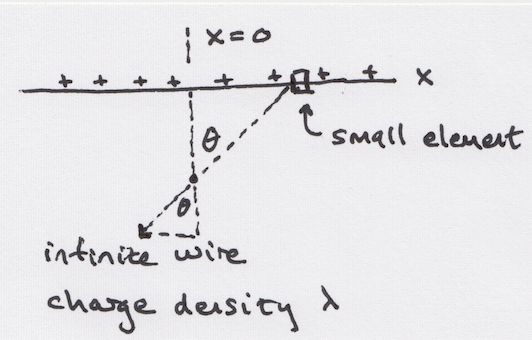 x=0
+ + + + + + + + x
θ
small element
θ
infinite wire
charge density λ